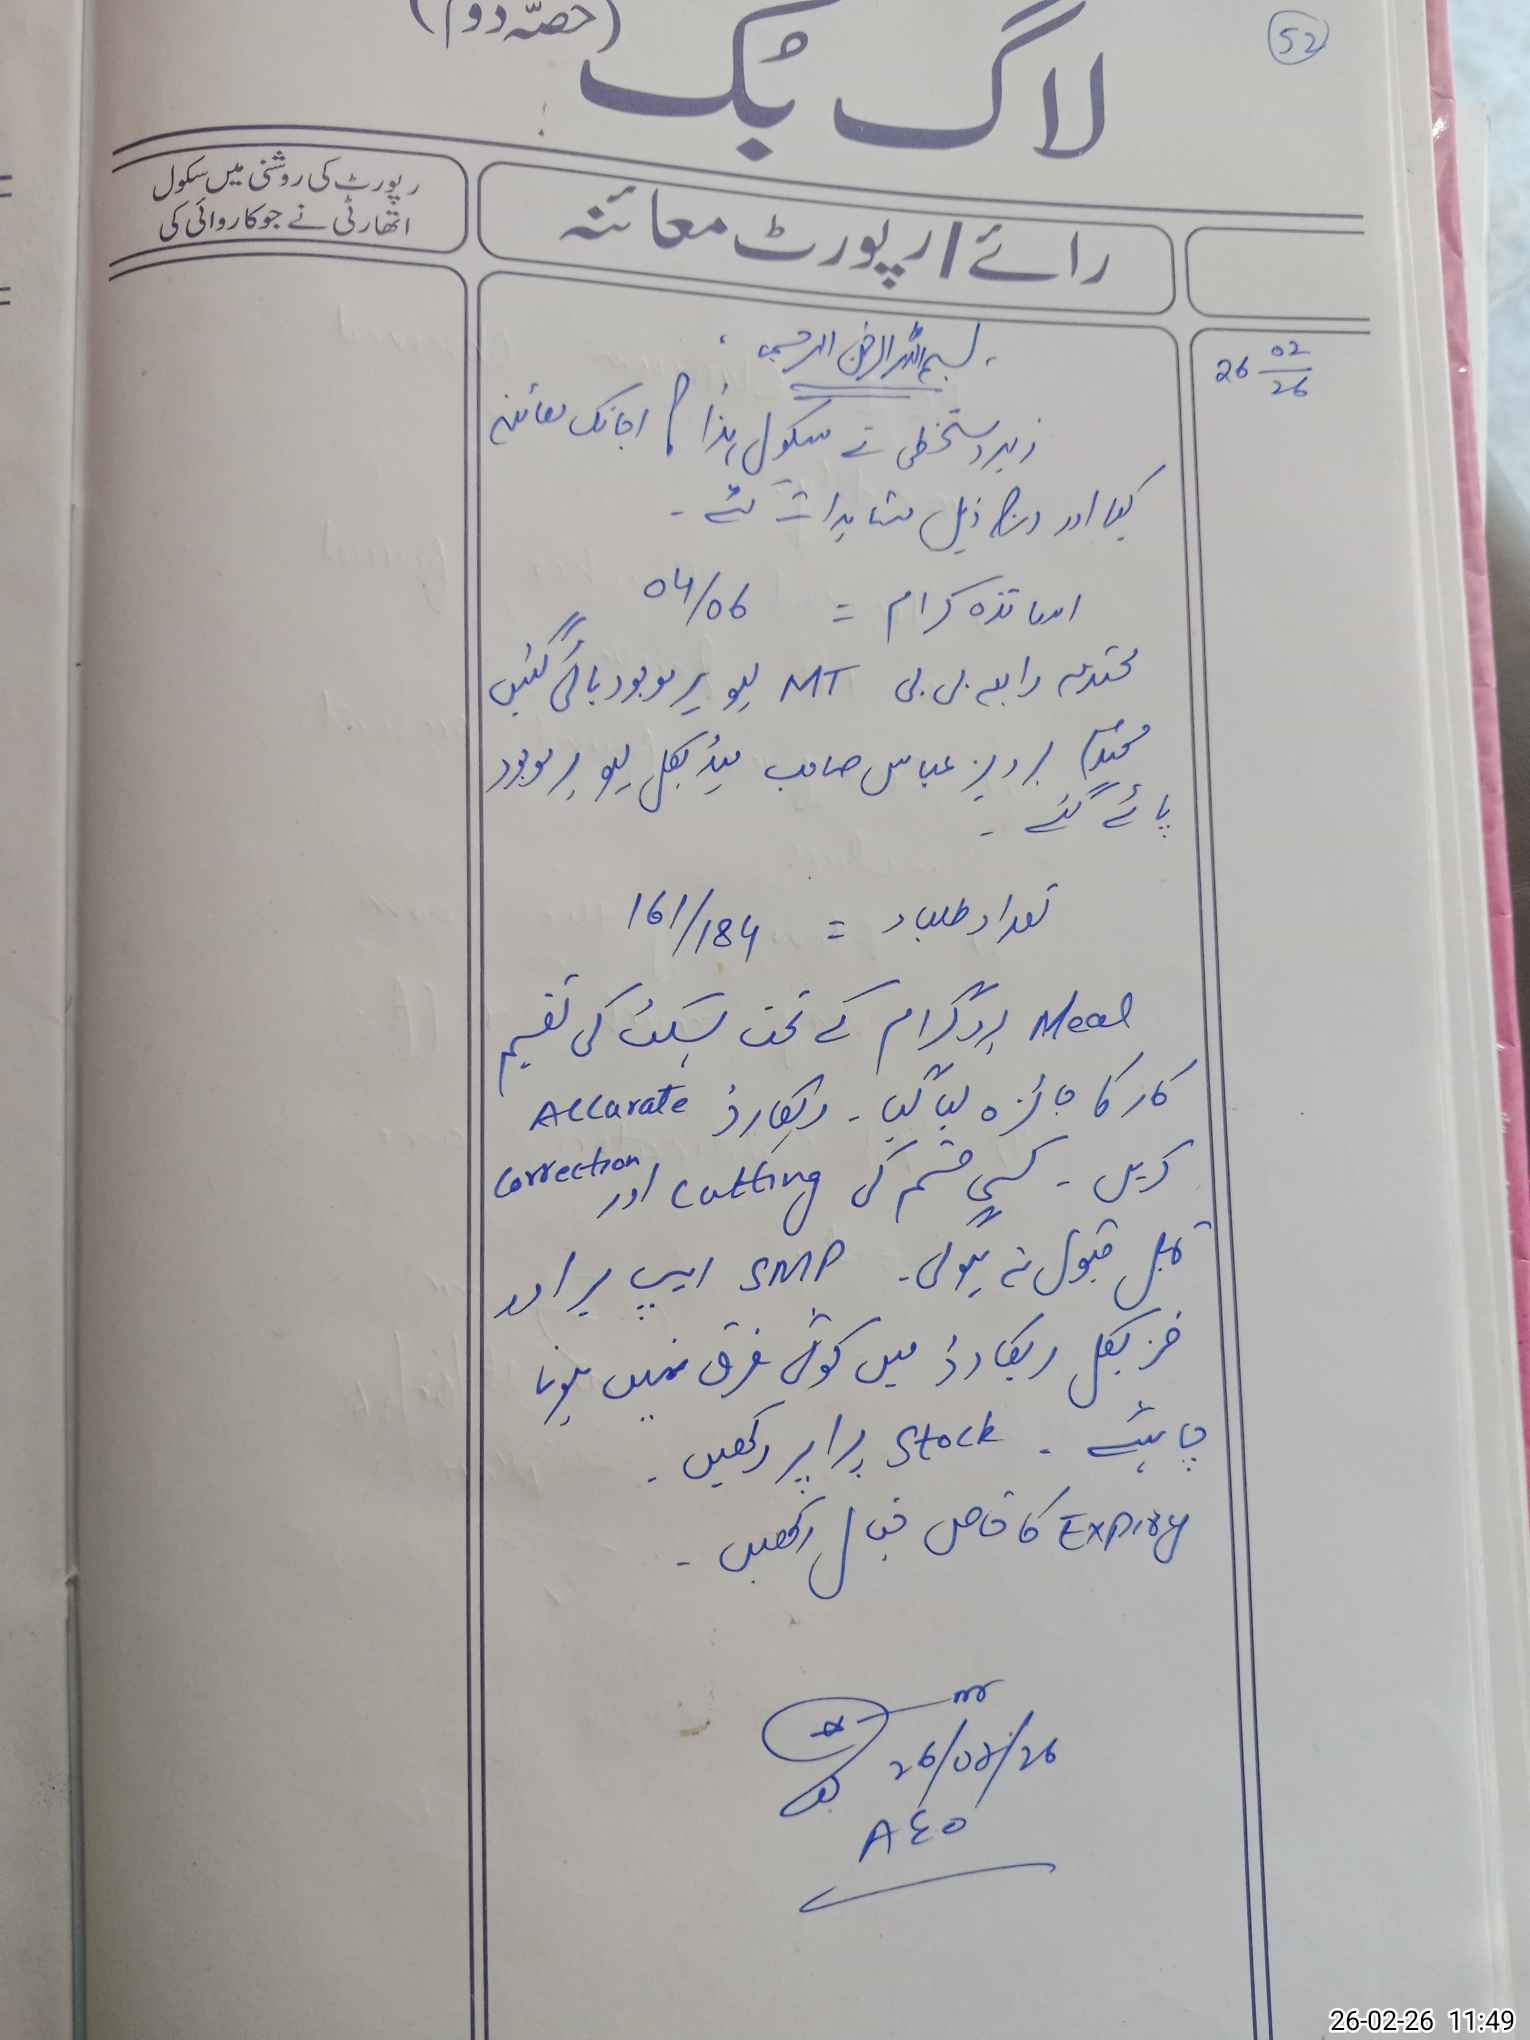 (حصّہ دوم)
52
لاگ بُک
رائے / رپورٹ معائنہ
رپورٹ کی روشنی میں سکول
اتھارٹی نے جو کاروائی کی
26 02/26
بسم اللہ الرحمن الرحیم
زیر دستخطی نے سکول ہذا کا اچانک معائنہ
کیا اور درج ذیل مشاہدات کئے۔
اساتذہ کرام = 04/06
محترمہ رابعہ بی بی MT لیو پر موجود پائی گئیں
محترم پرویز عباس صاحب میڈیکل لیو پر موجود
پائے گئے۔
تعداد طلباء = 161/184
Meal پروگرام کے تحت بسکٹ کی تقسیم
کار کا جائزہ لیا گیا۔ ریکارڈ Accurate
کریں۔ کسی قسم کی Cutting اور Correction
قابل قبول نہ ہوگی۔ SMP ایپ پر اور
فزیکل ریکارڈ میں کوئی فرق نہیں ہونا
چاہئے۔ Stock پراپر رکھیں۔
Expiry کا خاص خیال رکھیں۔
26/02/26
AEO
26-02-26 11:49